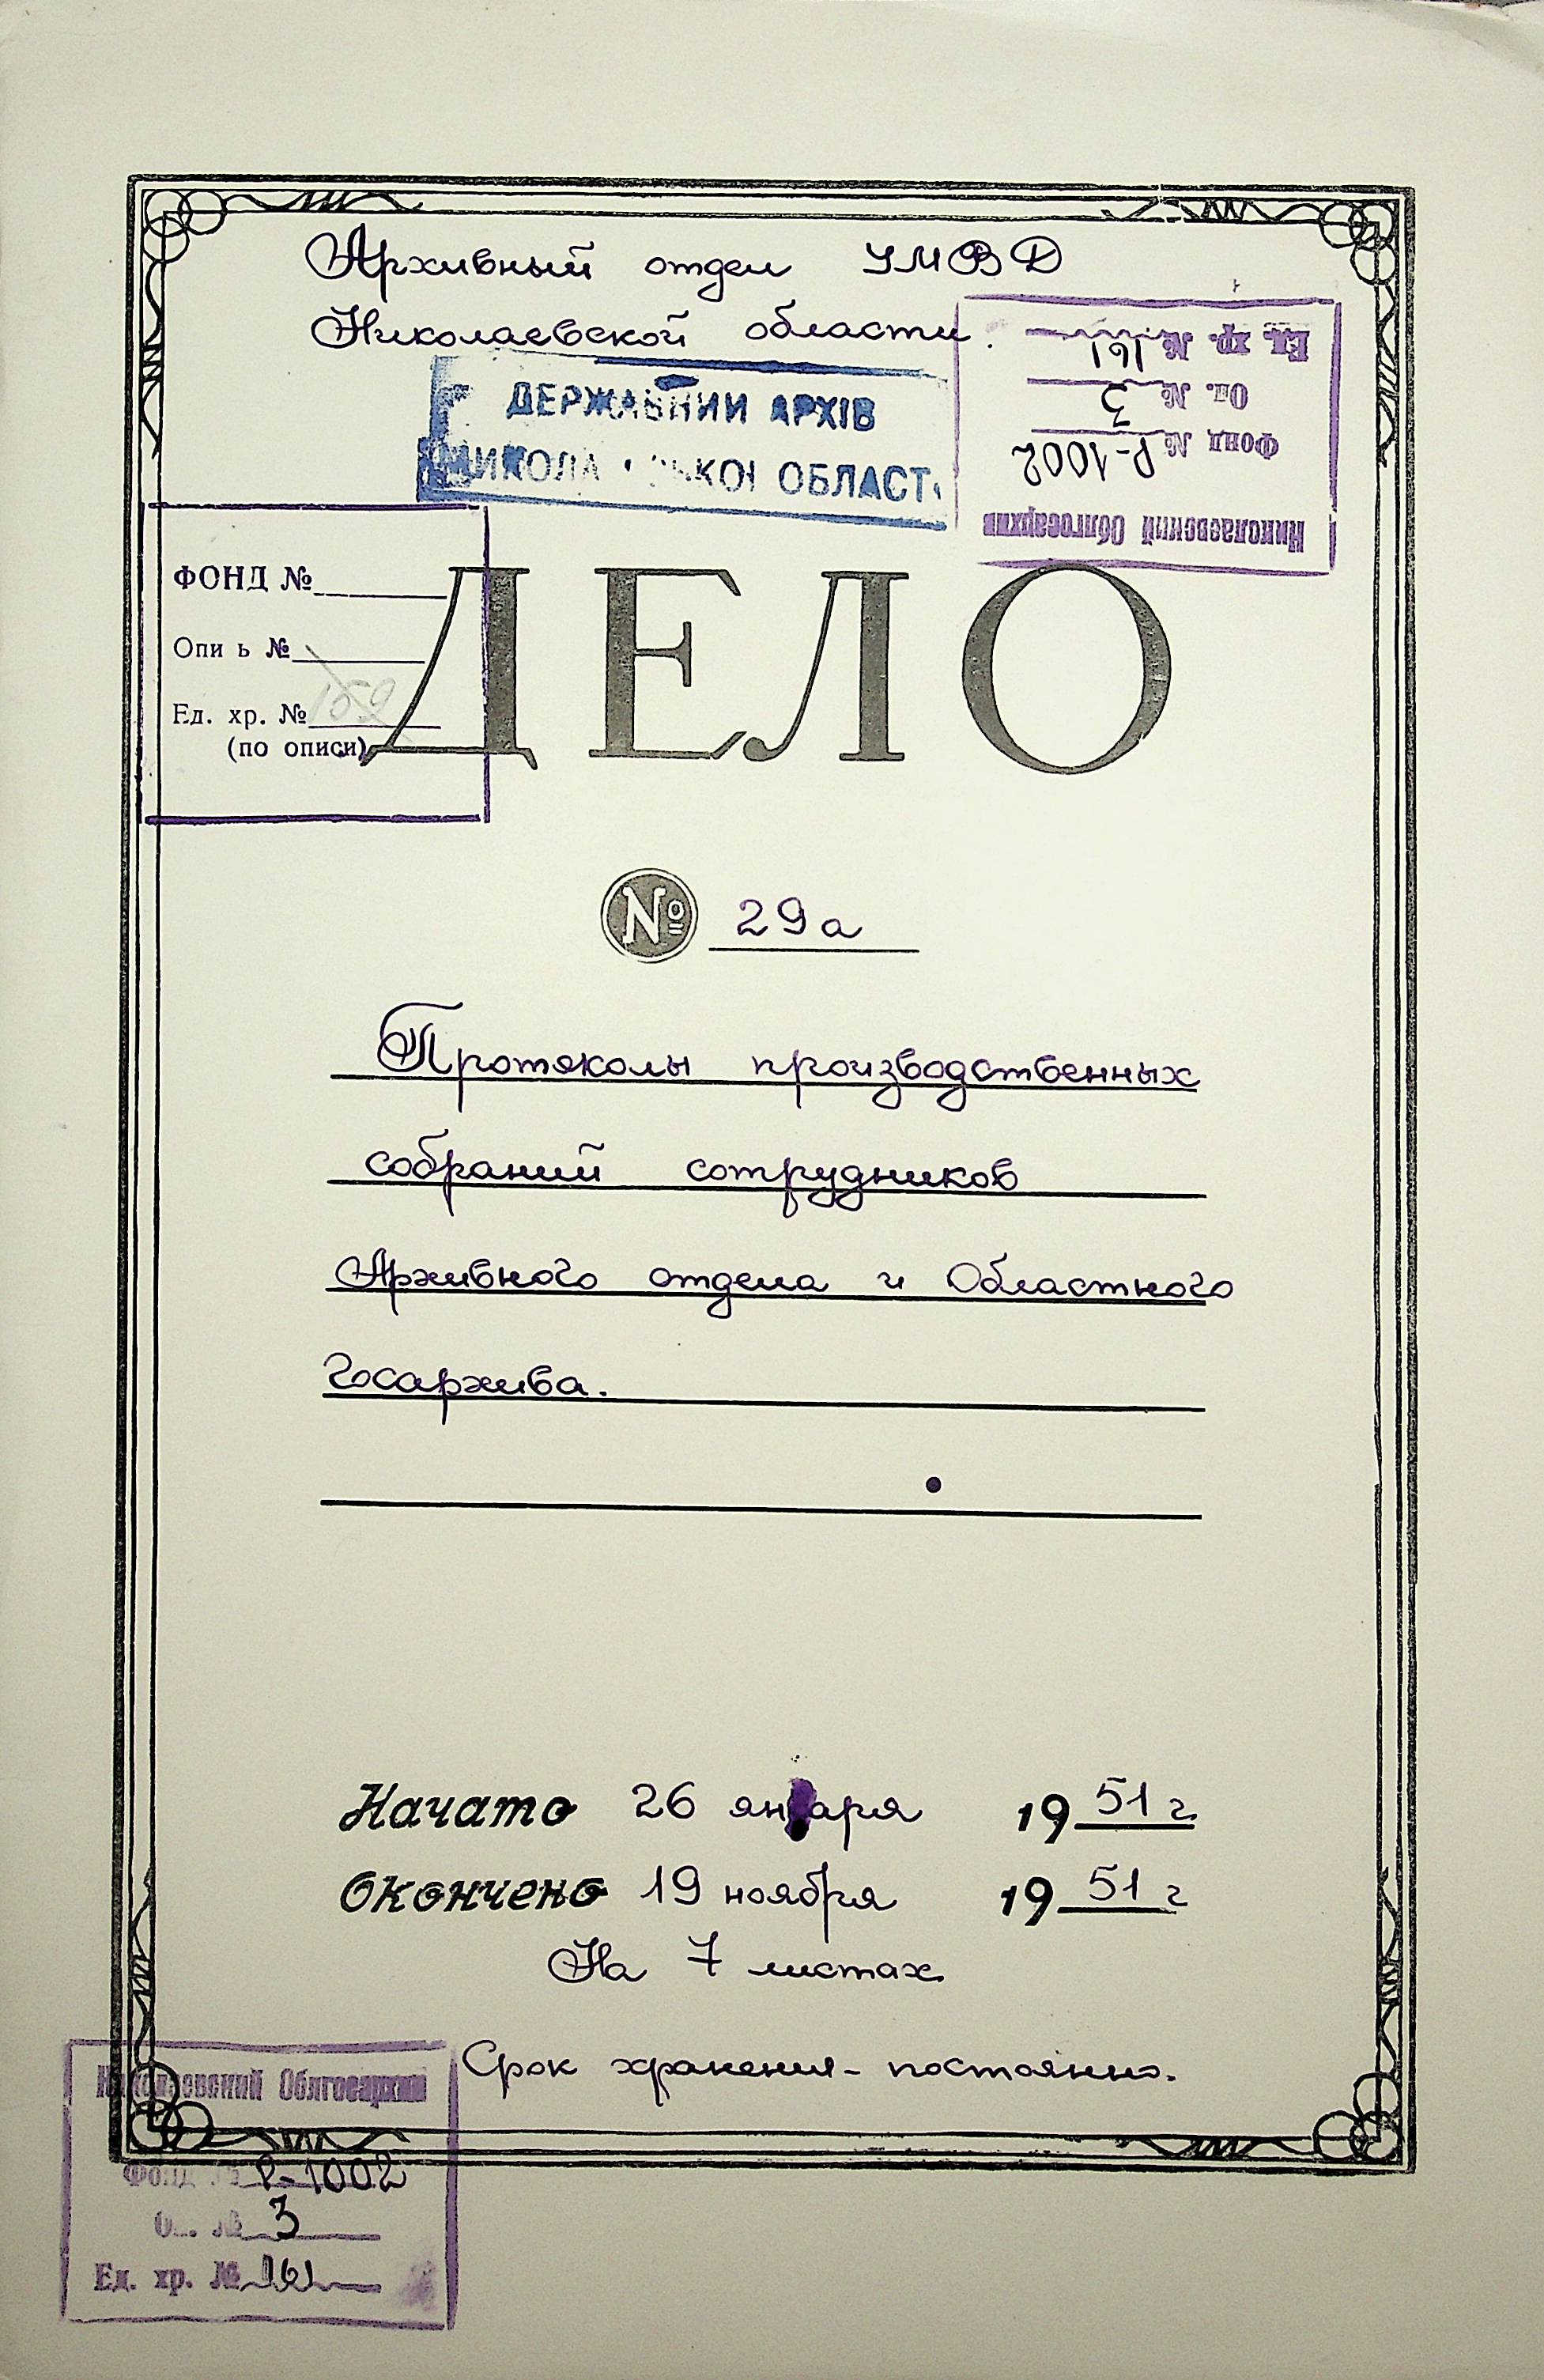 Архивный отдел УМВД
Николаевской области.
ДЕРЖАВНИЙ АРХІВ
ОБЛАСТІ
Николаевский Облгосархив
Фонд № Р-1002
Оп. № 3
Ед. хр. № 161
ФОНД №
Опи ь №
Ед. хр. № 159
(по описи)
ДЕЛО
№ 29а
Протоколы производственных
собраний сотрудников
Архивного отдела и Областного
Госархива.
Начато 26 января 1951 г.
Окончено 19 ноября 1951 г
На 7 листах
Срок хранения - постоянно.
Николаевский Облгосархив
Фонд № Р-1002
Оп. № 3
Ед. хр. № 161